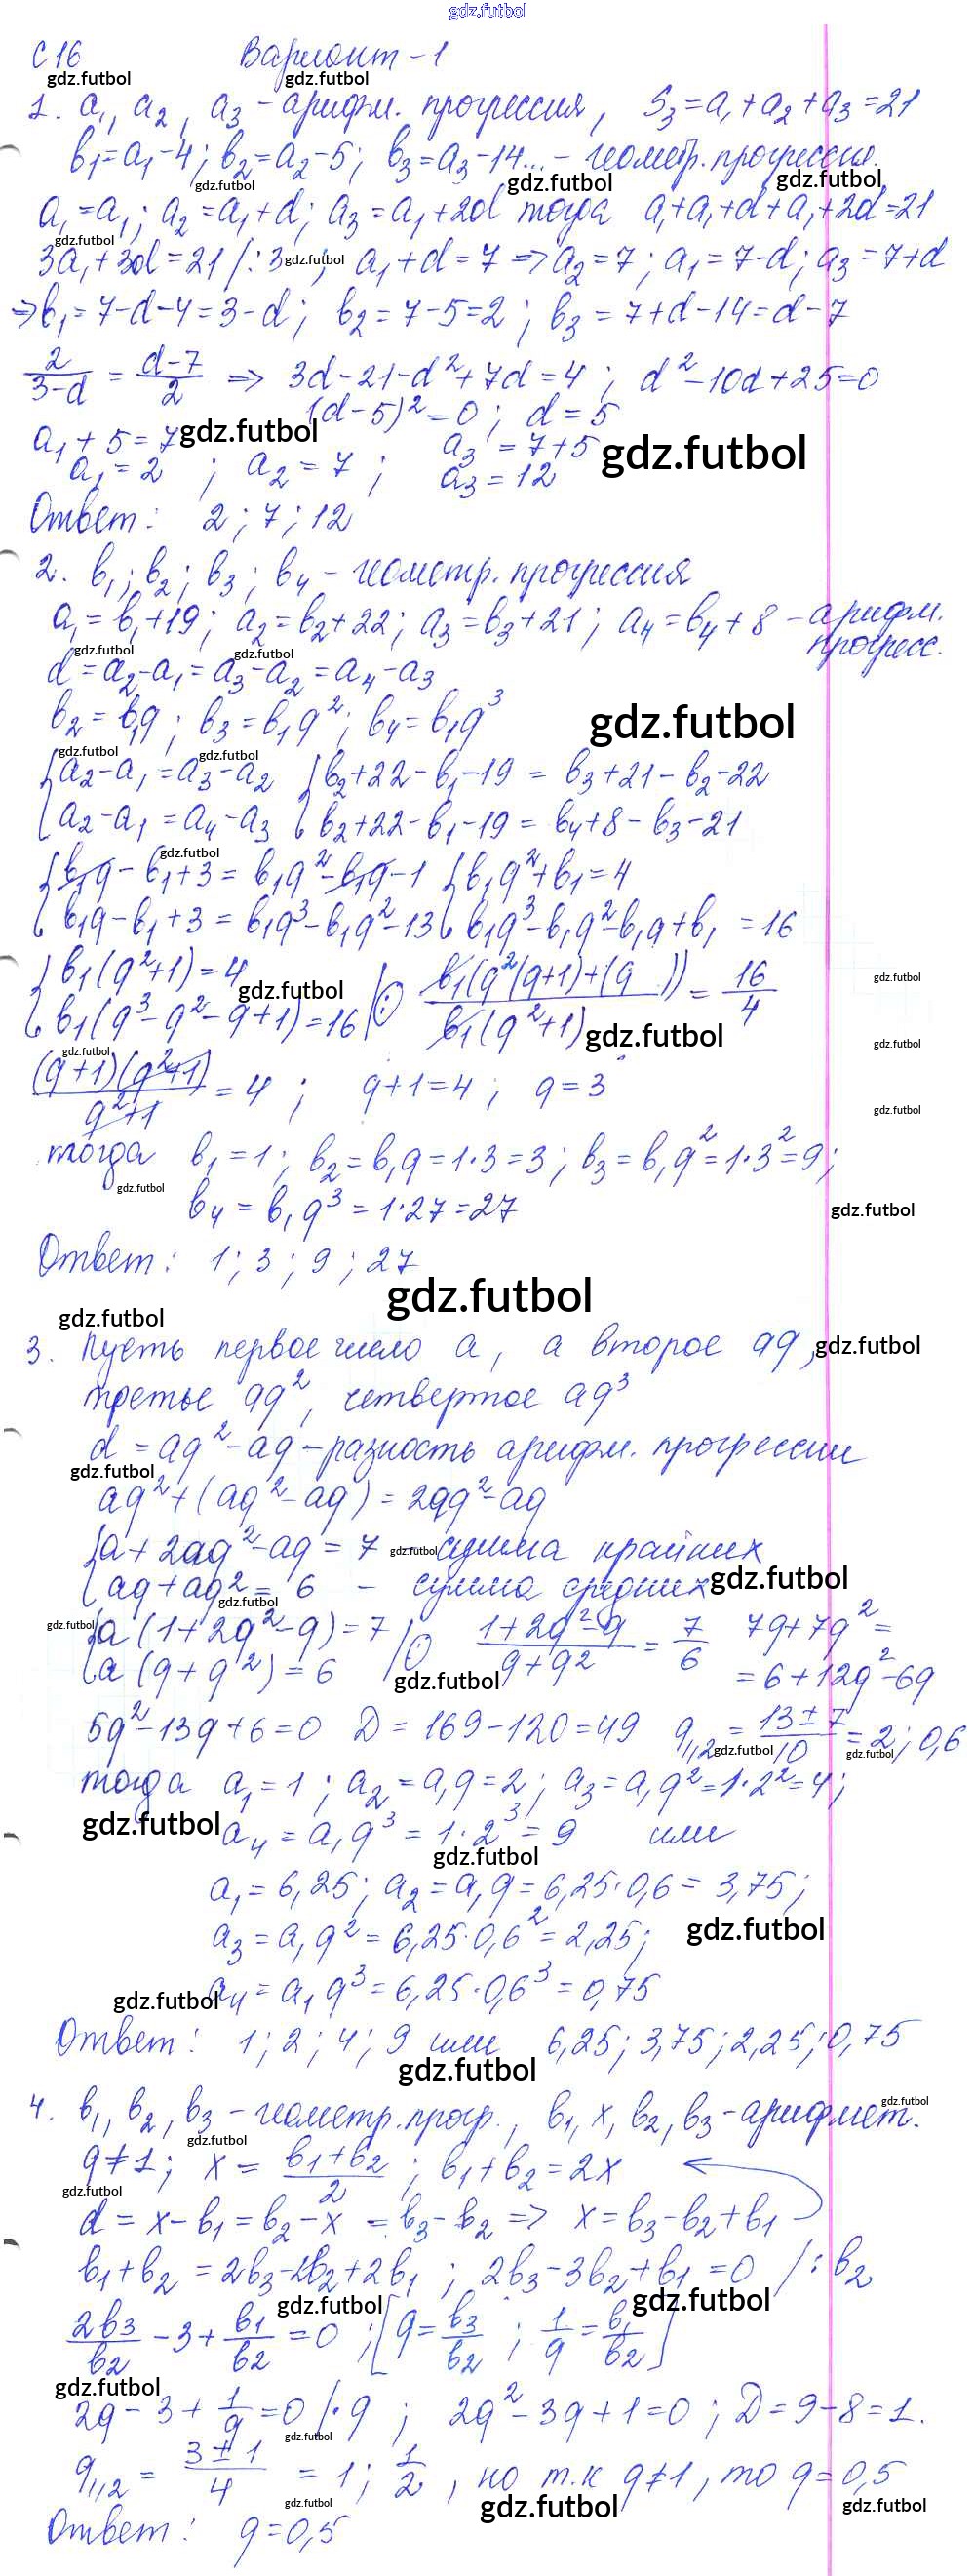 gdz.futbol
С 16 Вариант - 1
gdz.futbol gdz.futbol
1. a₁, a₂, a₃ - арифм. прогрессия, S₃ = a₁ + a₂ + a₃ = 21
b₁ = a₁ - 4; b₂ = a₂ - 5; b₃ = a₃ - 14... - геометр. прогрессия.
gdz.futbol gdz.futbol gdz.futbol
a₁ = a₁; a₂ = a₁ + d; a₃ = a₁ + 2d тогда a₁ + a₁ + d + a₁ + 2d = 21
gdz.futbol
3a₁ + 3d = 21 /: 3 gdz.futbol; a₁ + d = 7 => a₂ = 7; a₁ = 7 - d; a₃ = 7 + d
=> b₁ = 7 - d - 4 = 3 - d; b₂ = 7 - 5 = 2; b₃ = 7 + d - 14 = d - 7
2/(3 - d) = (d - 7)/2 => 3d - 21 - d² + 7d = 4; d² - 10d + 25 = 0
(d - 5)² = 0; d = 5
a₁ + 5 = 7 gdz.futbol a₃ = 7 + 5 gdz.futbol
a₁ = 2; a₂ = 7; a₃ = 12
Ответ: 2; 7; 12
2. b₁; b₂; b₃; b₄ - геометр. прогрессия
a₁ = b₁ + 19; a₂ = b₂ + 22; a₃ = b₃ + 21; a₄ = b₄ + 8 - арифм.
прогресс.
gdz.futbol gdz.futbol
d = a₂ - a₁ = a₃ - a₂ = a₄ - a₃
b₂ = b₁q; b₃ = b₁q²; b₄ = b₁q³ gdz.futbol
gdz.futbol gdz.futbol
{a₂ - a₁ = a₃ - a₂ {b₂ + 22 - b₁ - 19 = b₃ + 21 - b₂ - 22
{a₂ - a₁ = a₄ - a₃ {b₂ + 22 - b₁ - 19 = b₄ + 8 - b₃ - 21
gdz.futbol
{b₁q - b₁ + 3 = b₁q² - b₁q - 1 {b₁q² + b₁ = 4
{b₁q - b₁ + 3 = b₁q³ - b₁q² - 13 {b₁q³ - b₁q² - b₁q + b₁ = 16
{b₁(q² + 1) = 4 gdz.futbol
{b₁(q³ - q² - q + 1) = 16 /: b₁(q²(q + 1) + (q ))/b₁(q² + 1) = 16/4
gdz.futbol gdz.futbol
gdz.futbol
(q + 1)(q² + 1)/(q² + 1) = 4; q + 1 = 4; q = 3
gdz.futbol
тогда b₁ = 1; b₂ = b₁q = 1·3 = 3; b₃ = b₁q² = 1·3² = 9;
gdz.futbol
b₄ = b₁q³ = 1·27 = 27 gdz.futbol
Ответ: 1; 3; 9; 27
gdz.futbol
gdz.futbol
3. Пусть первое число a, а второе aq, gdz.futbol
третье aq², четвертое aq³
d = aq² - aq - разность арифм. прогрессии
gdz.futbol
aq² + (aq² - aq) = 2aq² - aq
{a + 2aq² - aq = 7 gdz.futbol - сумма крайних
{aq + aq² = 6 - сумма средних gdz.futbol
gdz.futbol
gdz.futbol {a(1 + 2q² - q) = 7
{a(q + q²) = 6 /: (1 + 2q² - q)/(q + q²) = 7/6 7q + 7q² =
= 6 + 12q² - 6q
gdz.futbol
5q² - 13q + 6 = 0 D = 169 - 120 = 49 q₁,₂ = (13 ± 7)/10 = 2; 0,6
gdz.futbol gdz.futbol
тогда a₁ = 1; a₂ = a₁q = 2; a₃ = a₁q² = 1·2² = 4;
gdz.futbol a₄ = a₁q³ = 1·2³ = 9 или
gdz.futbol
a₁ = 6,25; a₂ = a₁q = 6,25·0,6 = 3,75;
a₃ = a₁q² = 6,25·0,6² = 2,25; gdz.futbol
a₄ = a₁q³ = 6,25·0,6³ = 0,75
gdz.futbol
Ответ: 1; 2; 4; 9 или 6,25; 3,75; 2,25; 0,75
gdz.futbol
4. b₁, b₂, b₃ - геометр. прогр., b₁, x, b₂, b₃ - арифмет.
gdz.futbol gdz.futbol
q ≠ 1; x = (b₁ + b₂)/2; b₁ + b₂ = 2x
gdz.futbol
d = x - b₁ = b₂ - x = b₃ - b₂ => x = b₃ - b₂ + b₁
b₁ + b₂ = 2b₃ - 2b₂ + 2b₁; 2b₃ - 3b₂ + b₁ = 0 /: b₂
gdz.futbol gdz.futbol
2b₃/b₂ - 3 + b₁/b₂ = 0; [q = b₃/b₂; 1/q = b₁/b₂]
gdz.futbol
2q - 3 + 1/q = 0 /· q; 2q² - 3q + 1 = 0; D = 9 - 8 = 1.
gdz.futbol
q₁,₂ = (3 ± 1)/4 = 1; 1/2, но т.к q ≠ 1, то q = 0,5
gdz.futbol gdz.futbol gdz.futbol
Ответ: q = 0,5